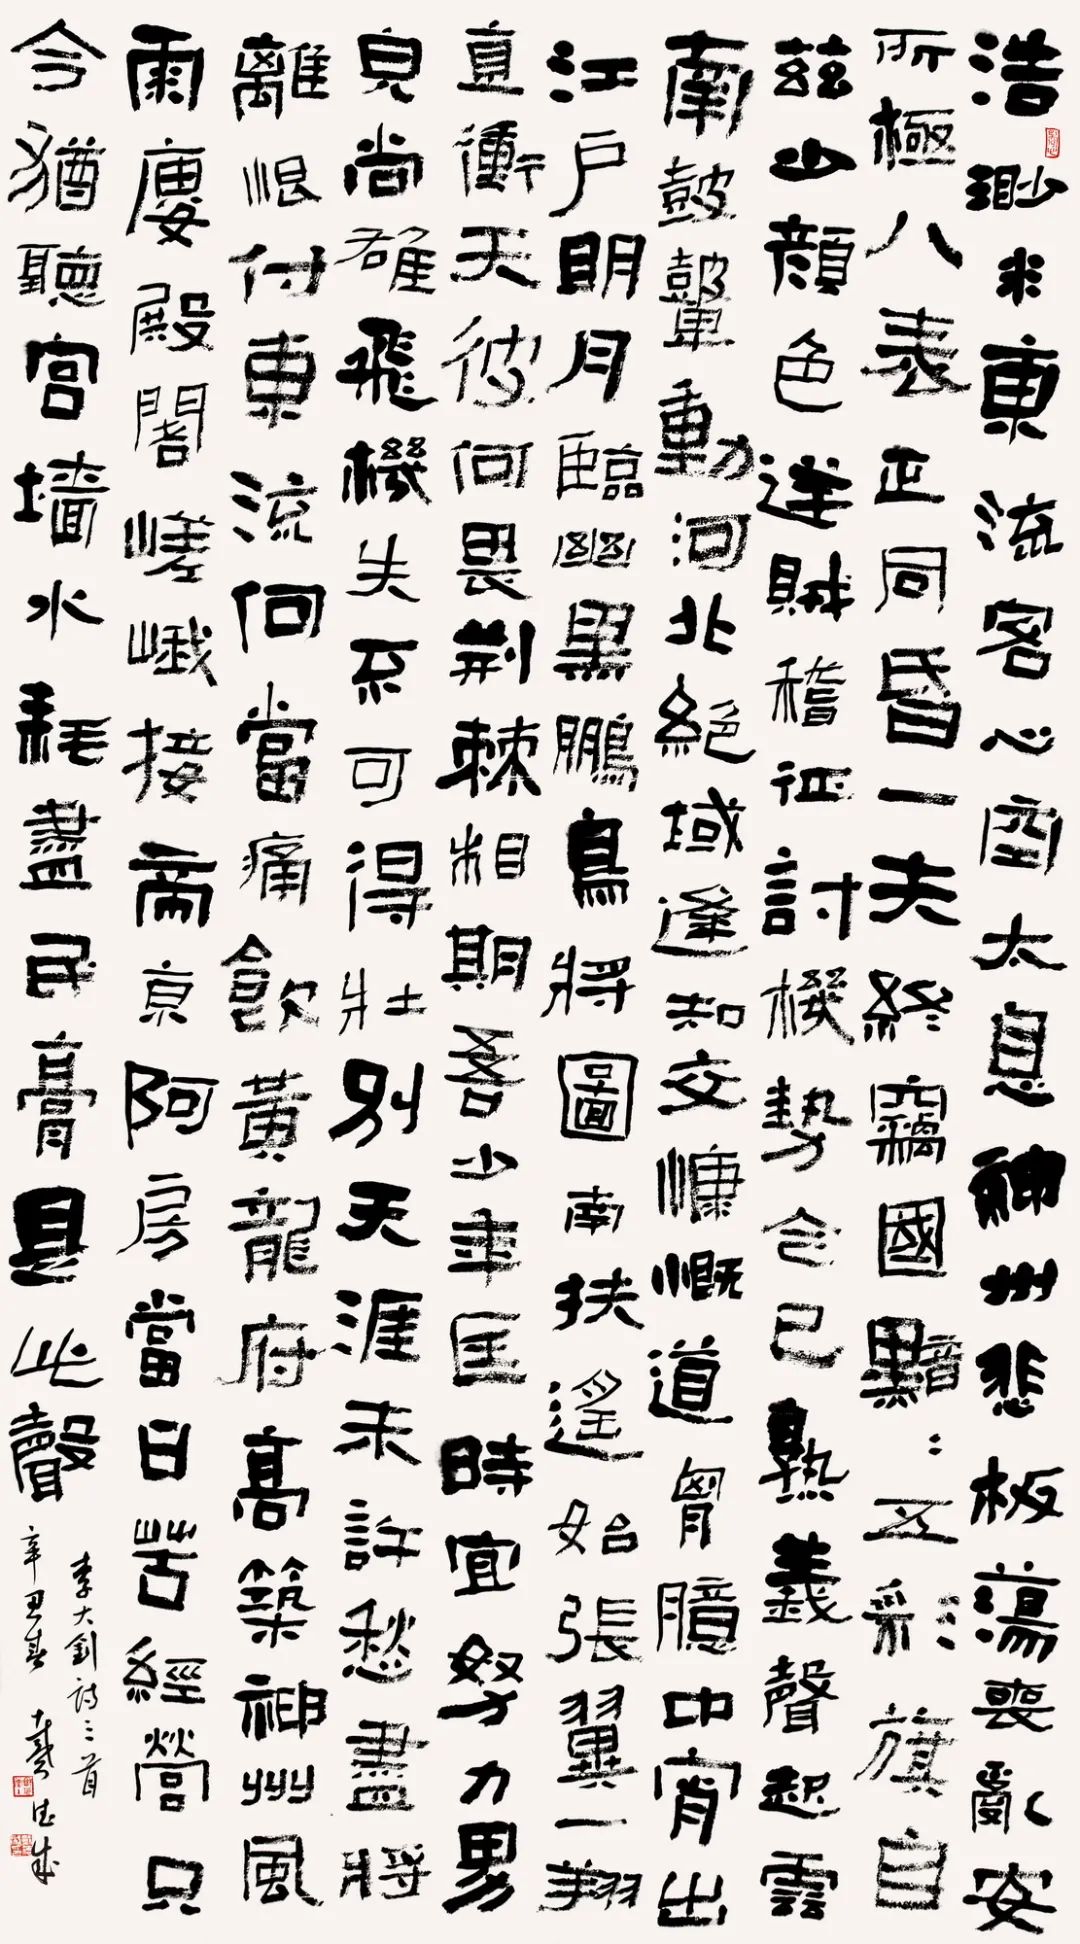 浩渺水東流客心空太息神州悲板蕩喪亂安
所極八表正同昏一夫終竊國黯：五彩旗自
茲少顏色逆賊稽征討機勢今已熟義聲起雲
南鼓鼙動河北絕域逢知交慷慨道胷臆中宵出
江戶明月臨幽黑鵬鳥將圖南扶遙始張翼一翔
直衝天彼何畏荆棘相期吾少年匡時宜努力男
皃尚雄飛機失不可得壯別天涯未許愁盡將
離恨付東流何當痛飲黃龍府高築神州風
雨廔殿閣嵯峨接帝京阿房當日苦經營只
今猶聽宮墙水耗盡民膏是此聲
李大釗詩三首
辛丑春